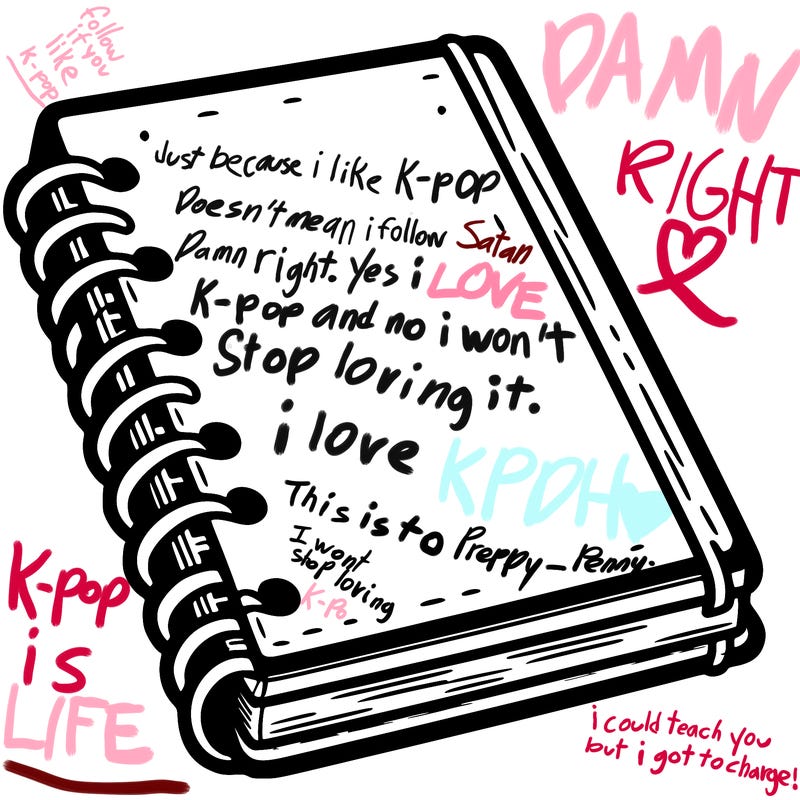 follow
if you
like
K-pop
DAMN
RIGHT
Just because i like K-pop
Doesn't mean i follow Satan
Damn right. Yes i LOVE
K-pop and no i won't
Stop loving it.
i love KPDH
This is to Preppy-Penny.
I wont
stop loving
K-Po
K-pop
is
LIFE
i could teach you
but i got to charge!